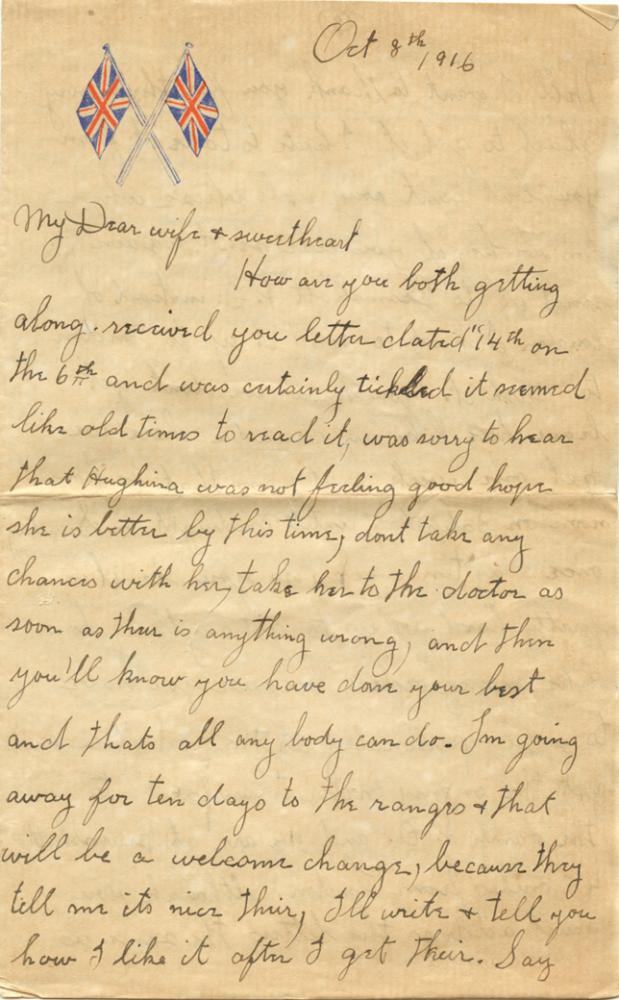 Oct 8th 1916
My Dear wife + sweetheart
How are you both getting
along. received you letter dated "14th on
the 6th and was certainly tickled it seemed
like old times to read it, was sorry to hear
that Hughina was not feeling good hope
she is better by this time, dont take any
chances with her, take her to the doctor as
soon as their is anything wrong, and then
you'll know you have done your best
and thats all any body can do. I'm going
away for ten days to the ranges + that
will be a welcome change, because they
tell me its nice their, I'll write + tell you
how I like it after I get their. Say